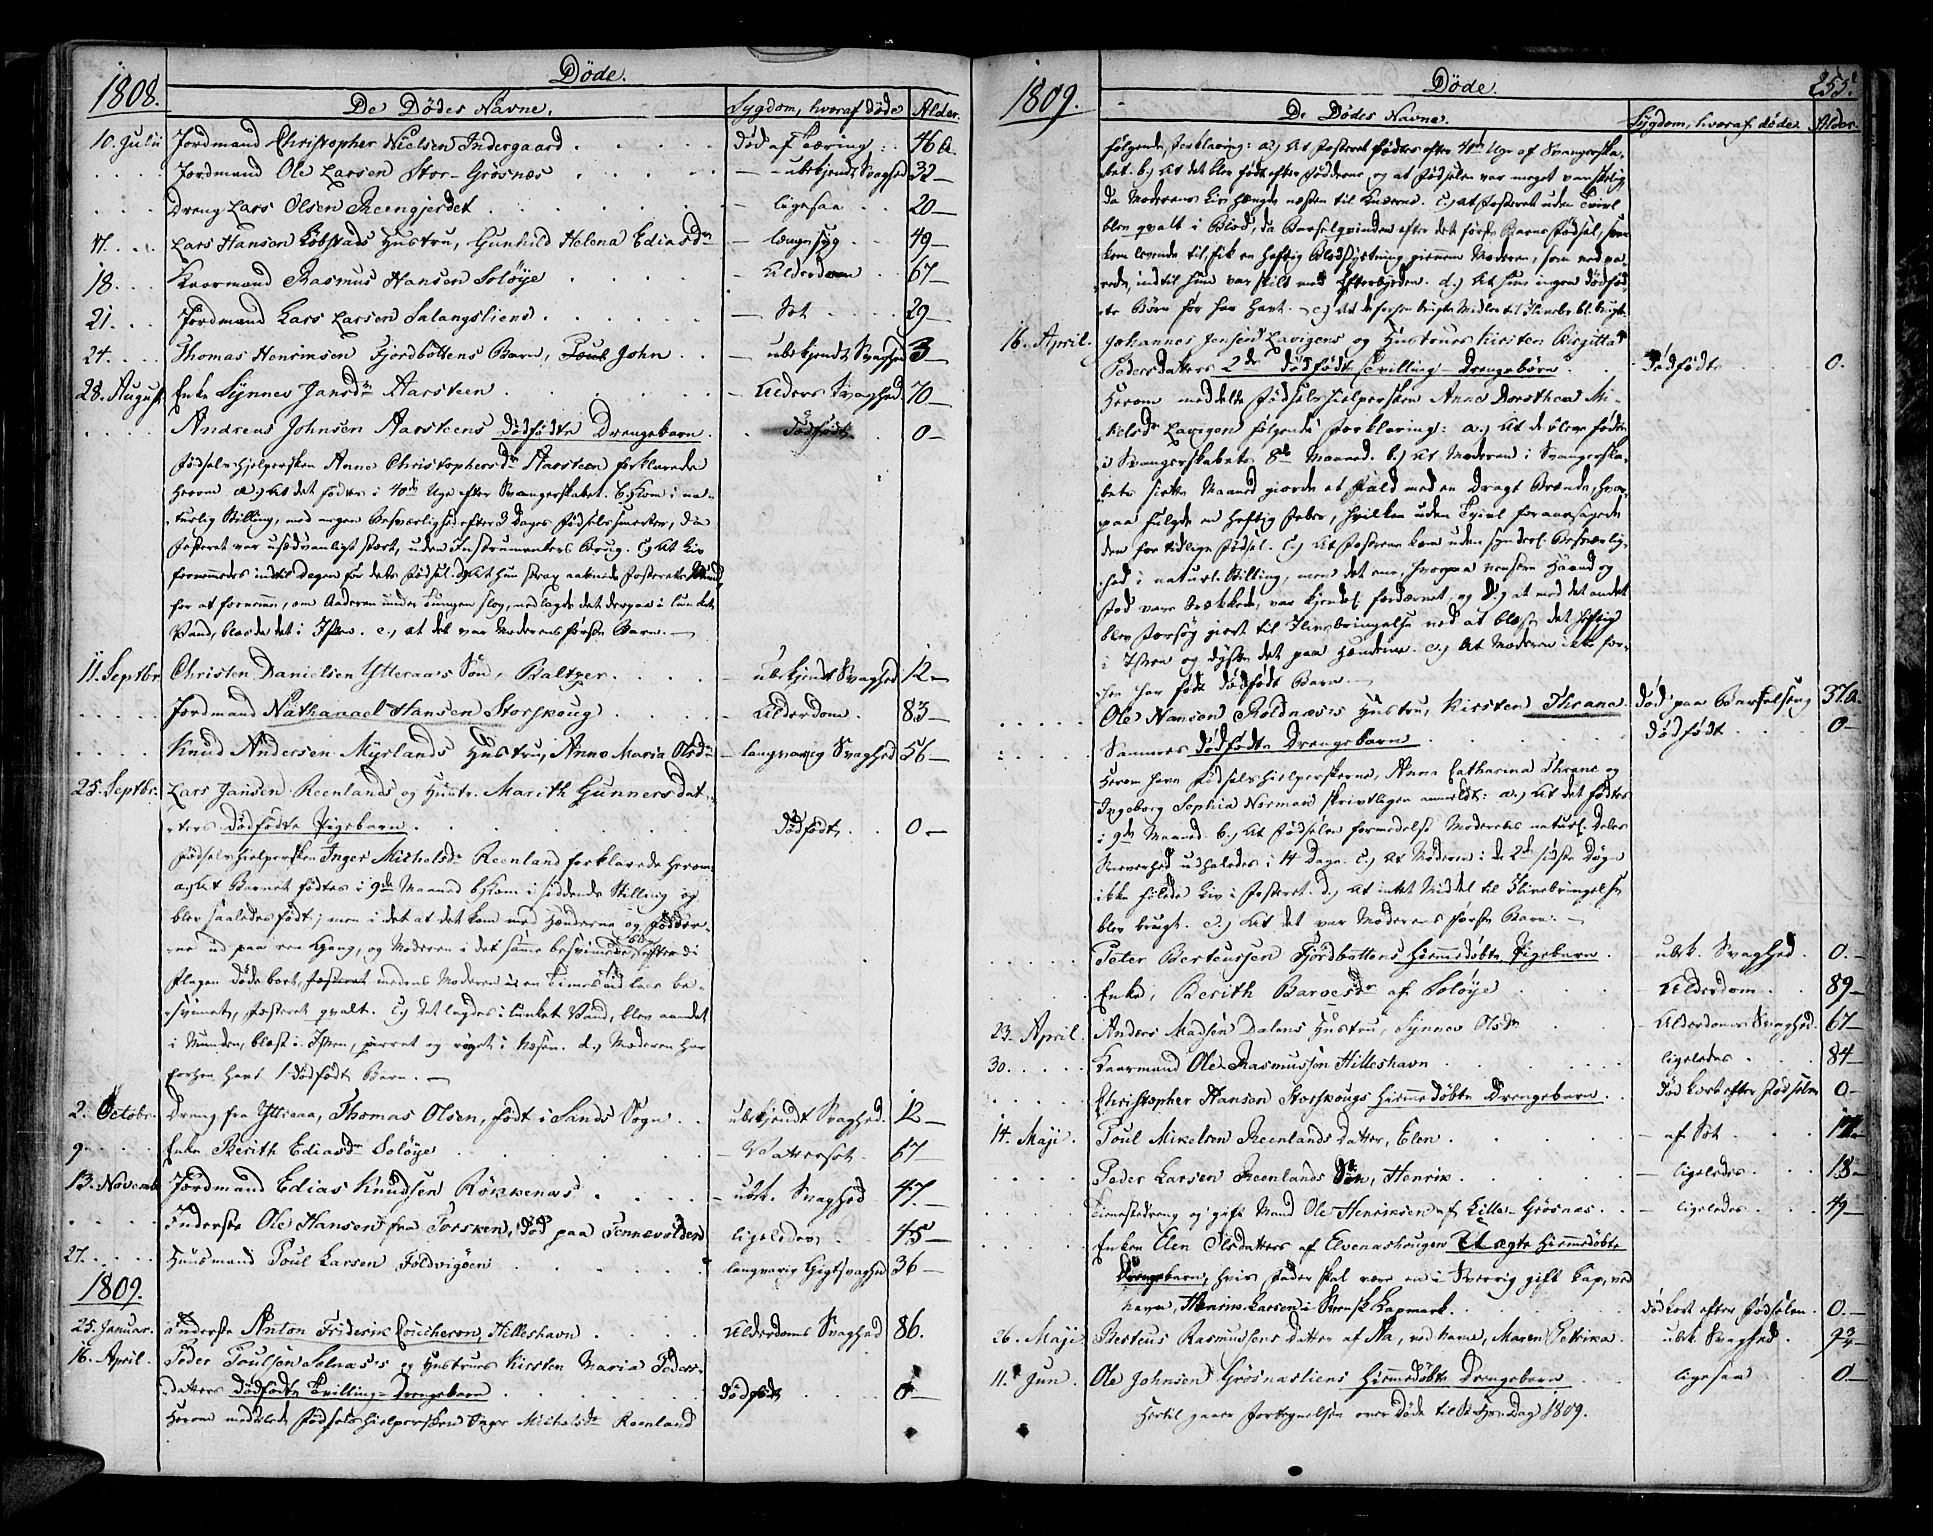 1808.
Døde.
De Dødes Navne.
Sygdom, hvoraf døde
Alder.
10. Julii Jordmand Christopher Nielsen Indergaard død af Tæring 46 A.
Jordmand Ole Larsen Stor-Grøsnæs — ubekjendt Svaghed 32 —
Dreng Lars Olsen Reengjerdet — ligesaa 20 —
17. Lars Hansen Købstads Hustru, Gunhild Helena Ediasdr — langsyg 49 —
18. Kaarmand Rasmus Hansen Soløye — Alderdom 67 —
21. Jordmand Lars Larsen Salangsliens — Sot 29 —
24. Thomas Henriksen Fjordbottens Barn, John — ubekjendt Svaghed 3 —
28. August Enke Synnev Jansdr Aarsteen — Alders Svaghed 70 —
Andreas Johnsen Aarsteens dødfødte Drengebarn dødfødt 0 —
Fødselshjelpersken Anne Christophersdr Aarsteen forklarede
herom a.) At det fødtes i 40de Uge efter Svangerskabet. b.) Kom i na-
turlig Stilling, med megen Besværlighed efter 3 Dages Fødselssmerter, da
Fosteret var usædvanligt stort, uden Instrumenters Brug. c.) At Liv
fornemmedes indtil Dagen før dets Fødsel. d.) At hun strax aabnede Fosterets Mund,
for at fornemme, om Aaderen under Tungen slog, nedlagde det derpaa i lunket
Vand, blæste det i Isen. e.) at det var Moderens første Barn. —
11. Septbr. Christen Danielsen Ytteraas Søn, Baltzer — ubekjendt Svaghed 12 —
Jordmand Nathanael Hansen Storskoug — Alderdom 83 —
Knud Andersen Myrlands Hustru, Anne Maria Olsdr — langvarig Svaghed 56 —
25. Septbr. Lars Jansen Reenlands og Hustr. Marith Gunnersdat-
ters dødfødte Pigebarn dødfødt 0 —
Fødselshjelpersken Inger Michelsdr Reenland forklarede herom
a.) At Barnet fødtes i 9de Maaned b.) Kom i siddende Stilling og
blev saaledes født; men i det at det kom med Hænderne og Fødder-
ne ud paa een Gang, og Moderen i det samme besvimede efter
døde bort, medens Moderen en Times Tid laae be-
svimet, Fosteret qvalt. c.) Det lagdes i lunket Vand, blev aandet
i Munden, blæst i Isen, og i Næsen. d.) Moderen har
forhen havt 1 dødfødt Barn. —
2. Octobr. Dreng fra Ytteraa, Thomas Olsen, født i Sands Sogn ubekjendt Svaghed 12 —
9. Enke Berith Ediasdr Soløye — Vattersot 67 —
13. Novembr Jordmand Edias Knudsen Røkkenæs — ubk. Svaghed 47. —
Inderste Ole Hansen fra Torsken, død paa Tennevoldene ligeledes 45 —
27. Huusmand Poul Larsen Foldvigøen langvarig Gigtsvaghed 36 —
1809.
25. Januar. Inderste Anton Friderik Coucheron, Hilleshavn Alderdoms Svaghed 86.
16. April. Peder Poulsen Selnæs's og Hustrues Kirsten Maria Peders-
datters dødfødte Tvilling-Drengebarn dødfødt 0 —
Herom meddelede Fødselshjelpersken Inger Michelsdr Reenland
1809.
Døde.
255.
De Dødes Navne.
Sygdom, hvoraf døde
Alder.
følgende Forklaring: a.) At Fosteret fødtes efter 40de Uge af Svangerska-
bet. b.) At det blev født efter Fødderne, og at Fødselen var meget vanskelig
da Moderens Liv hængte næsten til Knæerne. c.) At Fosteret uden Tvivl
blev qvalt i Blod, da Barselqvinden efter det første Barns Fødsel, som
kom levende til, fik en heftig Blodstyrtning giennem Moderen, som ved va-
rede, indtil hun var skilt med Efterbyrden. d.) At hun ingen dødfød-
te Børn før har havt. — e.) At de forhen brugte Midler til Ilivebr. bl. brugte.
16. April. Johannes Jensen Lavigens og Hustrues Kirsten Birgitta
Pedersdatters 2de dødfødte Tvilling-Drengebørn dødfødte 0.
Herom meddelte Fødselshielpersken Anne Dorthea Mi-
kelsdr Lavigen følgende Forklaring: a.) At de bleve fødte
i Svangerskabets 8de Maaned. b.) At Moderen i Svangerska-
bets siette Maaned giorde et Fald med en Dragt Brænde, hvor-
paa fulgte en heftig Feber, hvilken uden Tvivl foraarsagede
den for tidlige Fødsel. c.) At Fostrene kom uden synderl. Besværlig-
hed i naturl. Stilling, men det ene, hvorpaa venstre Haand og
Fod vare brækkede, var kjendel. fordærvet, og d.) at med det andet
blev Forsøg giort til Ilivebringelse ved at blæse det heftig
i Isen og dyste det paa Hænderne. e.) At Moderen ikke for-
hen har født dødfødt Barn. —
Ole Hansen Roldnæs's Hustru, Kirsten Thrane død paa Barselseng 37 A.
Sammes dødfødte Drengebarn dødfødt 0 —
Herom have Fødselshielperskerne, Anna Catharina Thrane og
Ingeborg Sophia Norman skrivtligen anmeldt: a.) At det fødtes
i 9de Maaned. b.) At Fødselen formedelst Moderens naturl. Deles
Snæverhed udhaledes i 14 Dage. c.) At Moderen i de 2de sidste Døgn
ikke følede Liv i Fosteret. d.) At intet Middel til Ilivebringelse
blev brugt. e.) At det var Moderens første Barn. —
Peter Berteussen Fjordbottens hiemmedøbte Pigebarn — ubk. Svaghed 0. —
Enke, Berith Baroesdr af Soløye — Alderdom 89 —
23. April. Anders Madsen Dalens Hustru, Synnev Olsdr — Alderdoms Svaghed 67 —
30. Kaarmand Ole Rasmussen Hilleshavn ligeledes 84 —
Christopher Hansen Storskougs hiemmedøbte Drengebarn død kort efter Fødselen 0 —
14. Maji. Poul Mikelsen Reenlands Datter, Elen — af Sot
Peder Larsen Reenlands Søn, Henrik — ligeledes 18 —
Tienestedreng og gift Mand Ole Henriksen af Lille-Grøsnæs — ligeledes 49 —
Enken Elen Olsdatters af Elvenæshougen uægte hiemmedøbte
Drengebarn, hvis Fader skal være en i Sverrig gift Lap, ved
Navn, Henrik Larsen i Svensk Lapmark død kort efter Fødselen 0. —
26. Maji Berteus Rasmussens Datter af Aa, ved Navn, Maren Petrika — ubk. Svaghed 9 3/4 —
11. Jun. Ole Johnsen Grøsnæsliens hiemmedøbte Drengebarn ligesaa 0 —
Hertil gaaer Fortegnelsen over Døde til Dag 1809.